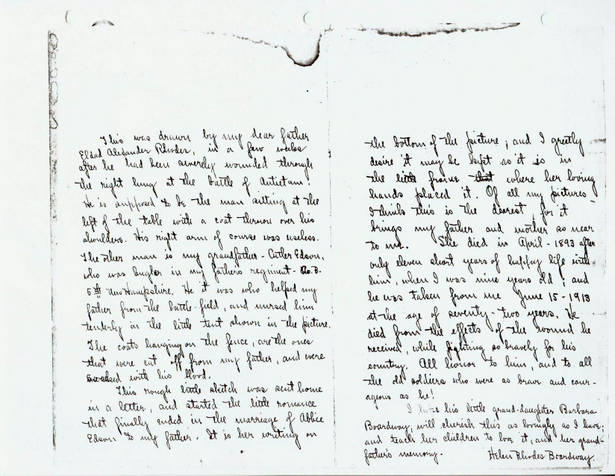 This was drawn by my dear father
Eldad Alexander Rhodes, in a few weeks
after he had been severely wounded through
the right lung at the battle of Antietam.
He is supposed to be the man sitting at the
left of the table with a coat thrown over his
shoulders. His right arm of course was useless.
The other man is my grandfather - Cutler Edson,
who was bugler in my father's regiment - Co. B.
5th New Hampshire. He it was who helped my
father from the battle-field, and nursed him
tenderly in the little tent shown in the picture.
The coats hanging on the fence, are the ones
that were cut off from my father, and were
soaked with his blood.
This rough little sketch was sent home
in a letter, and started the little romance
that finally ended in the marriage of Abbie
Edson to my father. It is her writing on
the bottom of the picture; and I greatly
desire it may be kept so it is in
the little frame that where her loving
hands placed it. Of all my pictures
I think this is the dearest for it
brings my father and mother so near
to me. She died in April - 1893 after
only eleven short years of happy life with
him, when I was nine years old; and
he was taken from me June 15 - 1913
at the age of seventy-two years. He
died from the effects of the wound he
received, while fighting so bravely for his
country. All honor to him, and to all
the old soldiers who were as brave and cour-
ageous as he!
I hope his little grand-daughter Barbara
Boardway, will cherish this as lovingly as I have;
and teach her children to love it, and her grand-
father's memory. Helen Rhodes Boardway.